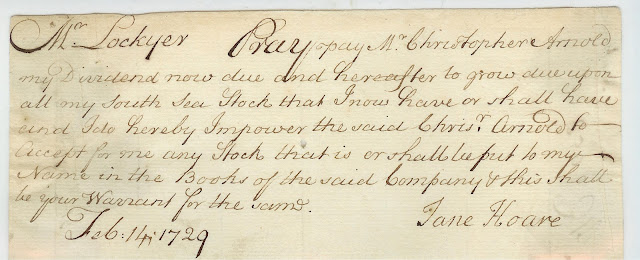 Mr. Lockyer Pray pay Mr. Christopher Arnold
my Dividend now due and hereafter to grow due upon
all my South Sea Stock that I now have or shall have
and I do hereby Impower the said Chrisr. Arnold to
Accept for me any Stock that is or shall be put to my
Name in the Books of the said Company & this shall
be your Warrant for the same.
Jane Hoare
Feb: 14: 1729